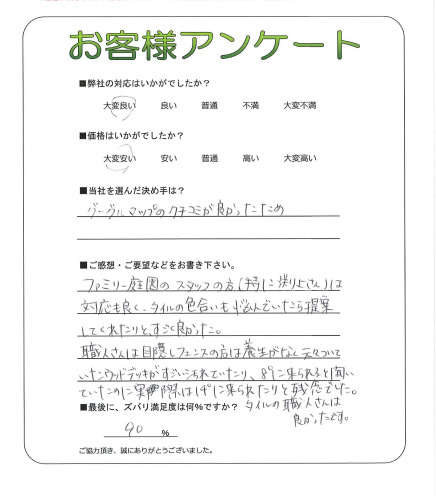 お客様アンケート
■弊社の対応はいかがでしたか？
大変良い 良い 普通 不満 大変不満
■価格はいかがでしたか？
大変安い 安い 普通 高い 大変高い
■当社を選んだ決め手は？
グーグルマップのクチコミが良かったため
■ご感想・ご要望などをお書き下さい。
ファミリー庭園のスタッフの方(特に渕上さん)は
対応も良く、タイルの色合いも悩んでいたら提案
してくれたりと、すごく良かった。
職人さんは目隠しフェンスの方は養生がなく元々ついて
いたウッドデッキがすごい られていたり、8°に来られると聞い
ていたのに実際は14°に来られたりと残念でした。
■最後に、ズバリ満足度は何％ですか？ タイルの職人さんは
良かったです。
90 ％
ご協力頂き、誠にありがとうございました。